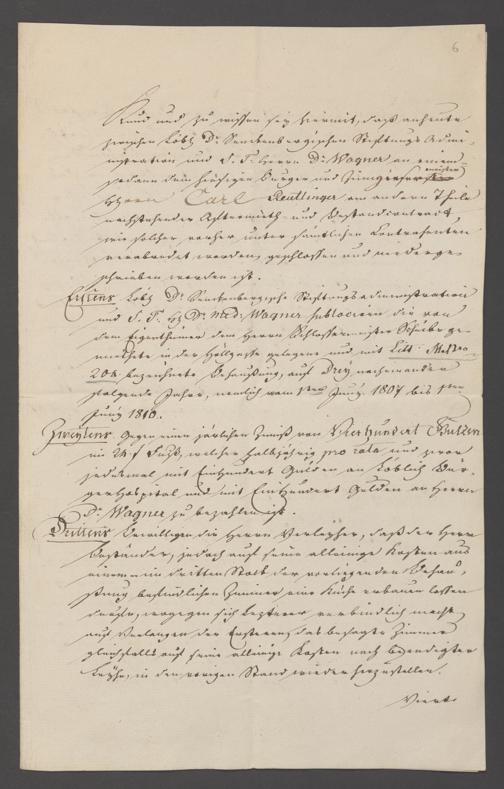 6
Kund und zu wissen sey hiermit, daß anheute
zwischen Löbl. Dr. Senckenbergischen Stiftungs Admi-
nistration und S. T. Herrn Dr. Wagner an einem
sodann dem hiesigen Burger und
meister
Herrn Carl Reutlinger am andern Theile
nachstehender Aftermieth- und Bestandcontract,
wie solcher vorher unter sämtlichen Contrahenten
verabredet worden, geschlossen und niederge-
schrieben worden ist.
Erstens Löbl. Dr. Senckenbergische Stiftungsadministration
und S. T. H. Dr. Med. Wagner sublociren die von
dem Eigenthümer dem Herrn Schlossermeister Scheibe ge-
miethete in der gelegene und mit Litt: No.
204 bezeichnete Behaußung, auf Drey nacheinander
folgende Jahre, nemlich vom 1ten Juny 1807 bis 1ten
Juny 1810.
Zweytens Gegen einen järlichen Zinnß von Vierhundert Gulden
im 24 f Fuß, welcher halbjährig pro rata und zwar
jedesmal mit Einhundert Gulden an Löblich Bur-
gerhospital und mit Einhundert Gulden an Herrn
Dr. Wagner zu bezahlen ist.
Drittens bewilligen die Herrn Verleyher, daß der Herr
Beständer, jedoch auf seine alleinige Kosten aus
einem im dritten Stock der vorliegenden Behau-
ßung befindlichen Zimmer eine Küche erbauen lassen
, wogegen sich Letzterer verbindlich macht,
auf Verlangen der Ersteren, das besagte Zimmer
gleichfalls auf seine alleinige Kosten nach beendigter
Leyhe, in den vorigen Stand wieder herzustellen.
Viert.